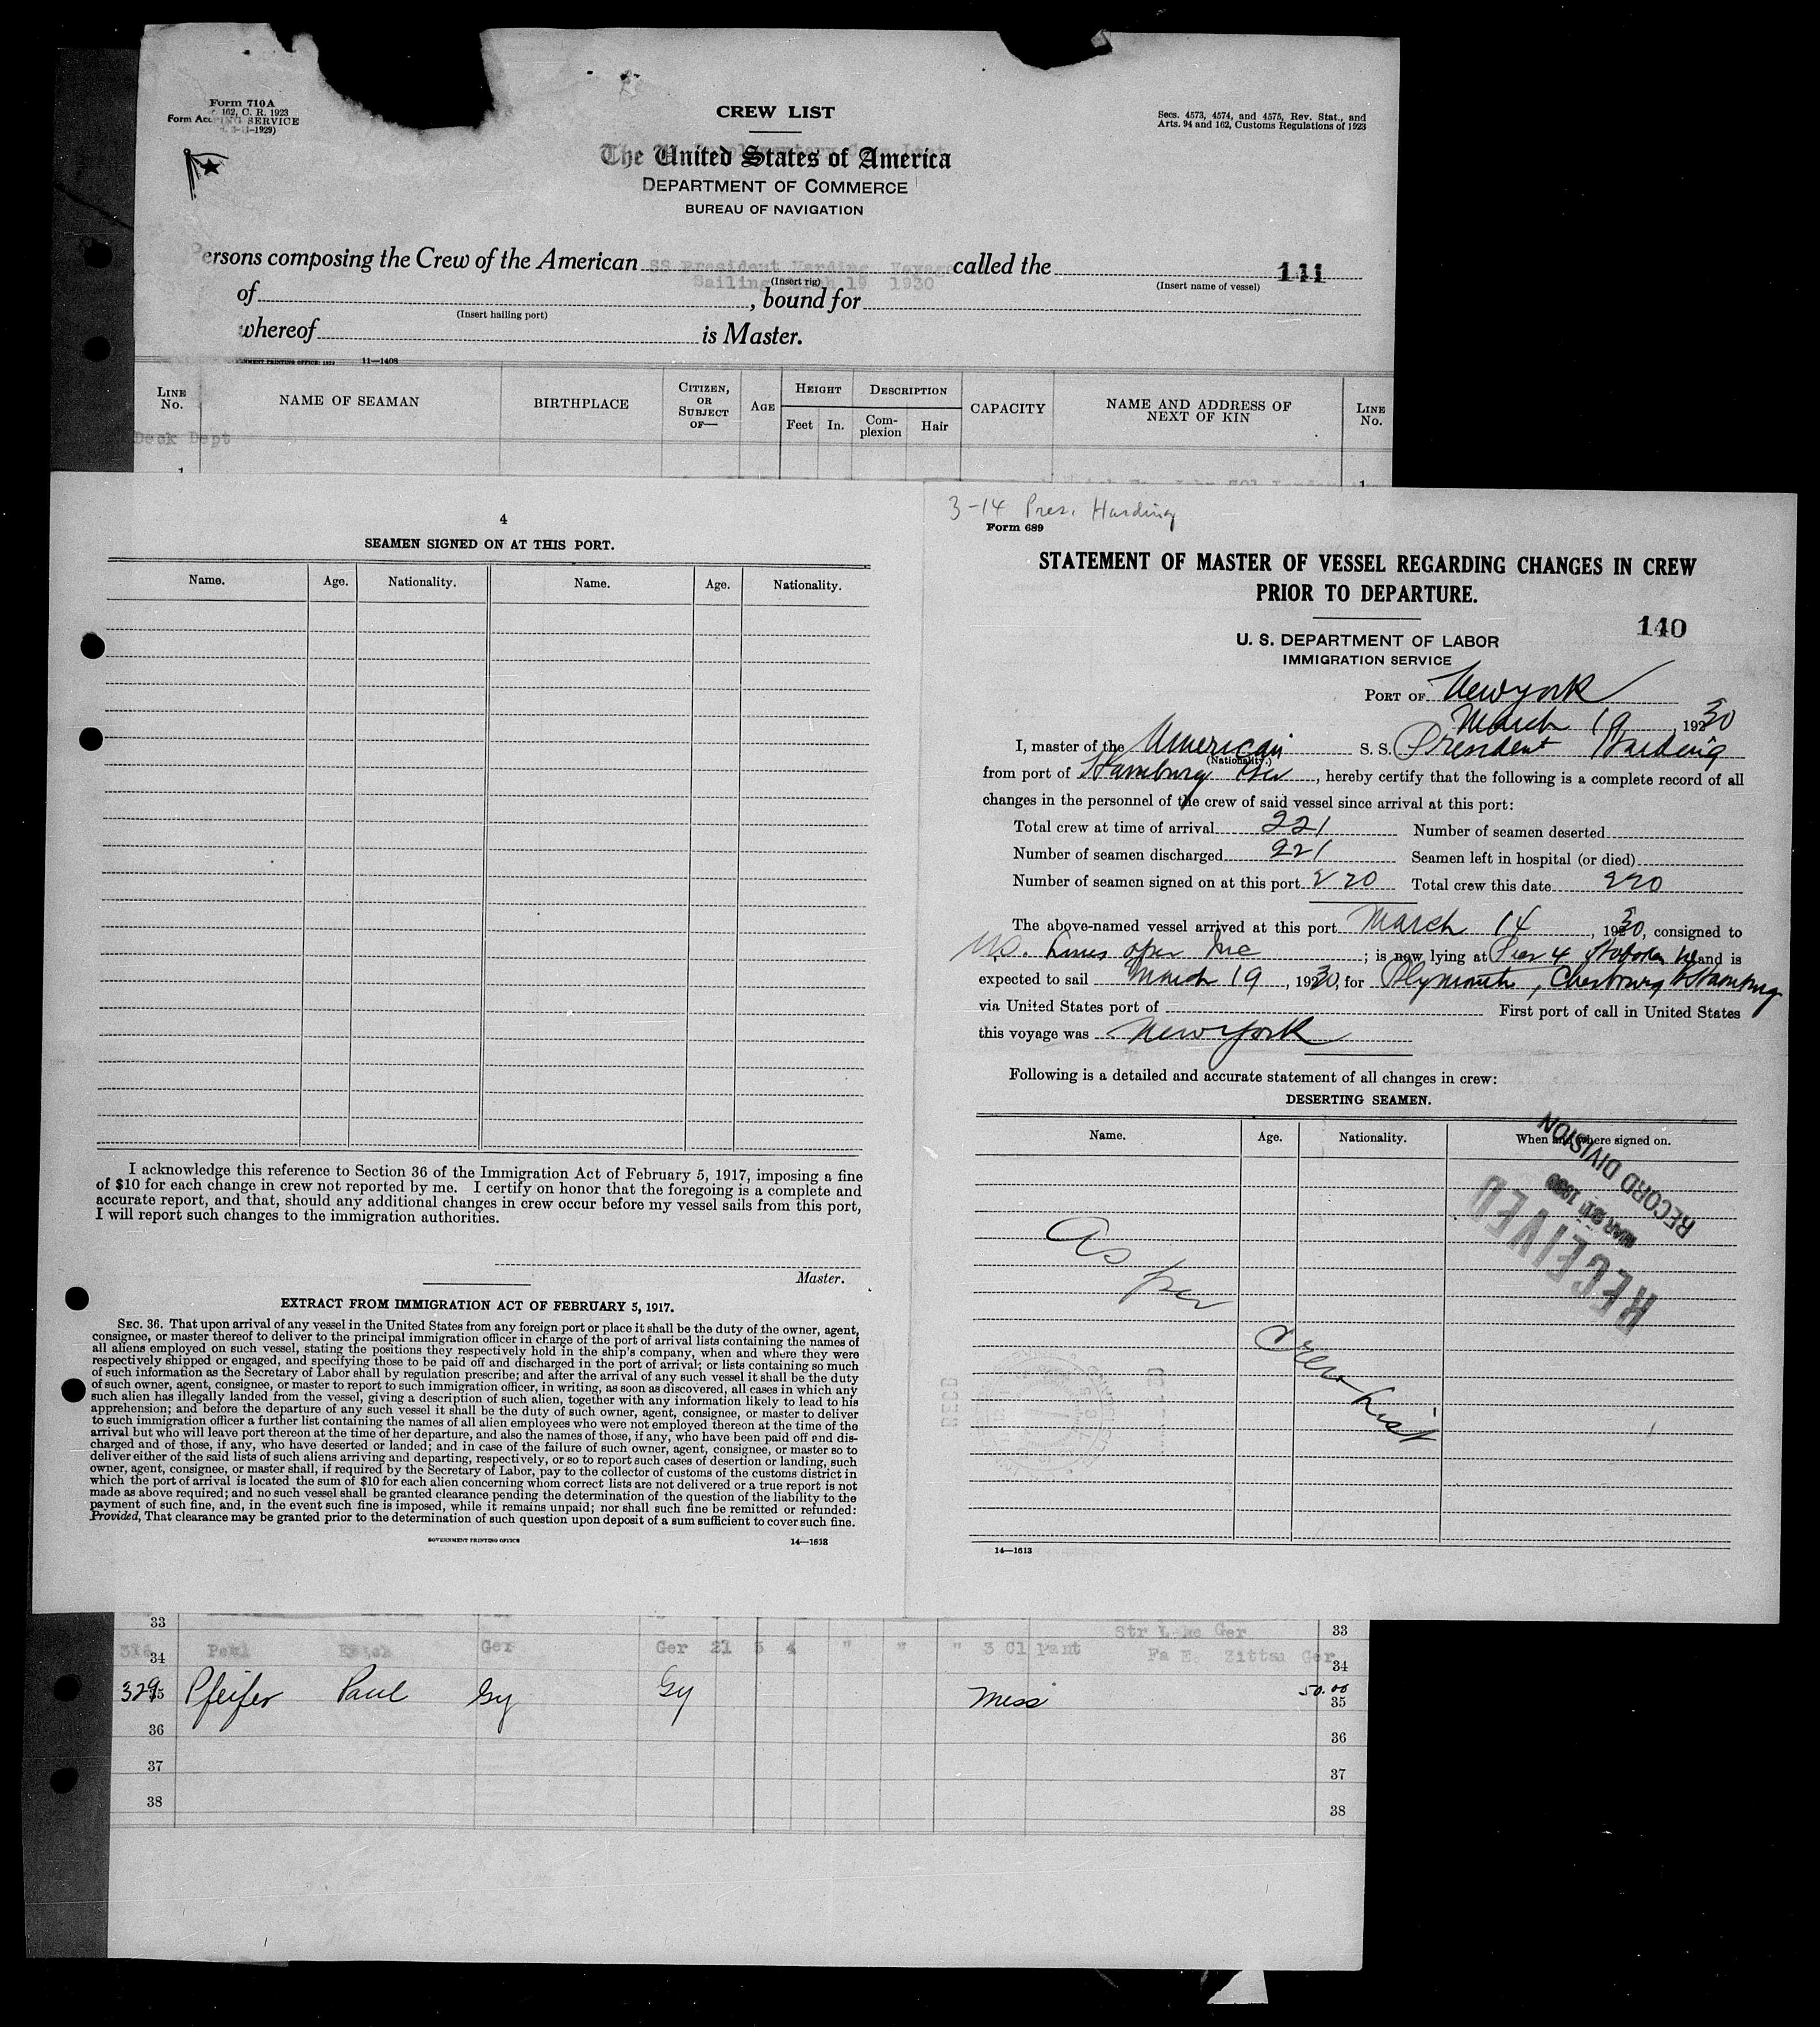 Form 710A
162, C. R. 1923
Form Acc
PING SERVICE
-1929)
CREW LIST
Secs. 4573, 4574, and 4575, Rev. Stat., and
Arts. 94 and 162, Customs Regulations of 1923
The United States of America
DEPARTMENT OF COMMERCE
BUREAU OF NAVIGATION
Persons composing the Crew of the American SS President Harding called the 141
Sailing March 19 1930
(Insert rig)
(Insert name of vessel)
of , bound for
(Insert hailing port)
whereof is Master.
11—1408
LINE No. NAME OF SEAMAN BIRTHPLACE CITIZEN, OR SUBJECT OF— AGE HEIGHT Feet In. DESCRIPTION Complexion Hair CAPACITY NAME AND ADDRESS OF NEXT OF KIN LINE No.
Deck Dept
1
4
SEAMEN SIGNED ON AT THIS PORT.
Name. Age. Nationality. Name. Age. Nationality.
I acknowledge this reference to Section 36 of the Immigration Act of February 5, 1917, imposing a fine
of $10 for each change in crew not reported by me. I certify on honor that the foregoing is a complete and
accurate report, and that, should any additional changes in crew occur before my vessel sails from this port,
I will report such changes to the immigration authorities.
Master.
EXTRACT FROM IMMIGRATION ACT OF FEBRUARY 5, 1917.
SEC. 36. That upon arrival of any vessel in the United States from any foreign port or place it shall be the duty of the owner, agent,
consignee, or master thereof to deliver to the principal immigration officer in charge of the port of arrival lists containing the names of
all aliens employed on such vessel, stating the positions they respectively hold in the ship's company, when and where they were
respectively shipped or engaged, and specifying those to be paid off and discharged in the port of arrival; or lists containing so much
of such information as the Secretary of Labor shall by regulation prescribe; and after the arrival of any such vessel it shall be the duty
of such owner, agent, consignee, or master to report to such immigration officer, in writing, as soon as discovered, all cases in which any
such alien has illegally landed from the vessel, giving a description of such alien, together with any information likely to lead to his
apprehension; and before the departure of any such vessel it shall be the duty of such owner, agent, consignee, or master to deliver
to such immigration officer a further list containing the names of all alien employees who were not employed thereon at the time of the
arrival but who will leave port thereon at the time of her departure, and also the names of those, if any, who have been paid off and dis-
charged and of those, if any, who have deserted or landed; and in case of the failure of such owner, agent, consignee, or master so to
deliver either of the said lists of such aliens arriving and departing, respectively, or so to report such cases of desertion or landing, such
owner, agent, consignee, or master shall, if required by the Secretary of Labor, pay to the collector of customs of the customs district in
which the port of arrival is located the sum of $10 for each alien concerning whom correct lists are not delivered or a true report is not
made as above required; and no such vessel shall be granted clearance pending the determination of the question of the liability to the
payment of such fine, and, in the event such fine is imposed, while it remains unpaid; nor shall such fine be remitted or refunded:
Provided, That clearance may be granted prior to the determination of such question upon deposit of a sum sufficient to cover such fine.
GOVERNMENT PRINTING OFFICE 14—1613
3-14 Pres. Harding
Form 689
STATEMENT OF MASTER OF VESSEL REGARDING CHANGES IN CREW
PRIOR TO DEPARTURE.
140
U. S. DEPARTMENT OF LABOR
IMMIGRATION SERVICE
PORT OF New York
March 19, 1930
I, master of the American S. S. President Harding
(Nationality.)
from port of Hamburg Ger, hereby certify that the following is a complete record of all
changes in the personnel of the crew of said vessel since arrival at this port:
Total crew at time of arrival 221 Number of seamen deserted
Number of seamen discharged 221 Seamen left in hospital (or died)
Number of seamen signed on at this port 220 Total crew this date 220
The above-named vessel arrived at this port March 14, 1930, consigned to
U.S. Lines oper Inc; is now lying at Pier 4 Hoboken and is
expected to sail March 19, 1930, for Plymouth, Cherbourg Hamburg
via United States port of First port of call in United States
this voyage was New York
Following is a detailed and accurate statement of all changes in crew:
DESERTING SEAMEN.
Name. Age. Nationality. When and where signed on.
RECEIVED
MAR 1930
RECORD DIVISION
As per Crew List
14—1613
33 Str Ger 33
34 Ger Ger 21 5 4 " " " 3 Cl pant Fa E. Zittau Ger 34
329 35 Pfeifer Paul Gy Gy Mess 50.00 35
36 36
37 37
38 38